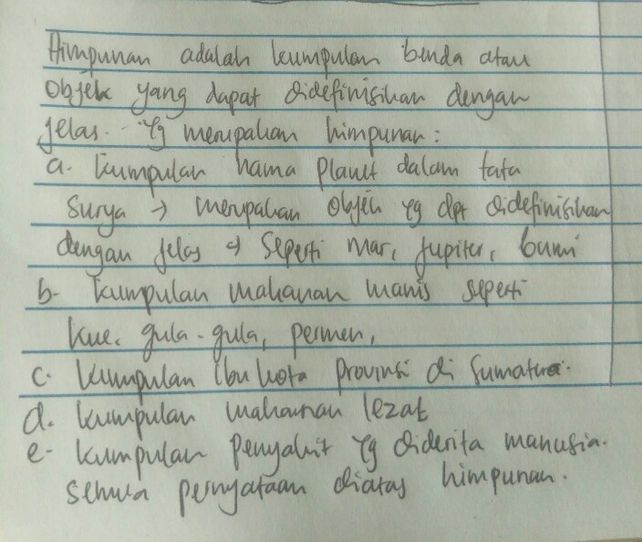 Himpunan adalah kumpulan benda atau
Objek yang dapat didefinisikan dengan
jelas. Yg merupakan himpunan:
a. kumpulan nama planet dalam tata
surya → merupakan Objek yg dpt didefinisikan
dengan jelas → seperti mar, jupiter, bumi
b. kumpulan makanan manis seperti
kue, gula-gula, permen,
c. kumpulan ibu kota provinsi di Sumatra.
d. kumpulan makanan lezat
e. kumpulan penyakit yg diderita manusia.
semua pernyataan diatas himpunan.